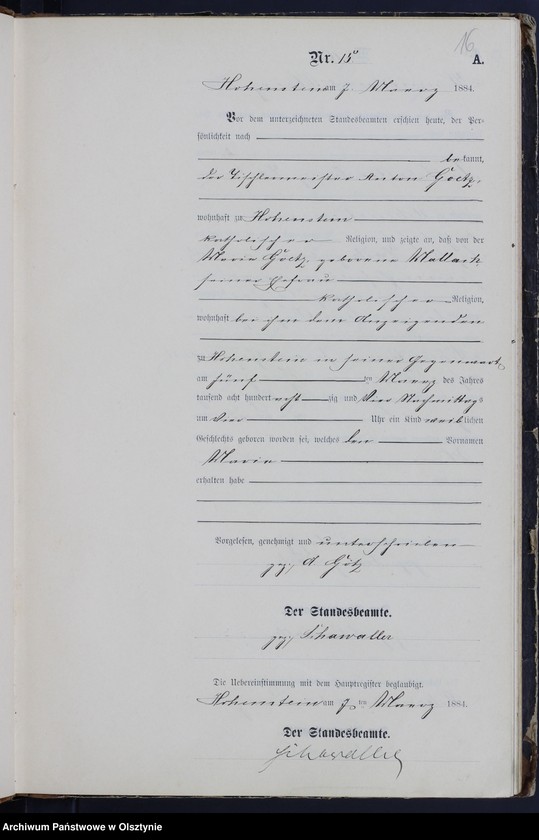 16
Nr. 15
A.
Hohenstein am 7. Maerz 1884.
Vor dem unterzeichneten Standesbeamten erschien heute, der Per-
sönlichkeit nach
be kannt,
der Tischlermeister Anton Goetz,
wohnhaft zu Hohenstein
katholischer Religion, und zeigte an, daß von der
Maria Goetz geborene Wallach
seiner Ehefrau
katholischer Religion,
wohnhaft bei ihm dem Anzeigenden
zu Hohenstein in seiner Gegenwart
am fünf ten Maerz des Jahres
tausend acht hundert acht zig und vier Nachmittags
um vier Uhr ein Kind weiblichen
Geschlechts geboren worden sei, welches den Vornamen
Maria
erhalten habe
Vorgelesen, genehmigt und unterschrieben
gez. A. Götz
Der Standesbeamte.
gez. Schawaller
Die Uebereinstimmung mit dem Hauptregister beglaubigt.
Hohenstein am 7 ten Maerz 1884.
Der Standesbeamte.
Schawaller
Archiwum Państwowe w Olsztynie